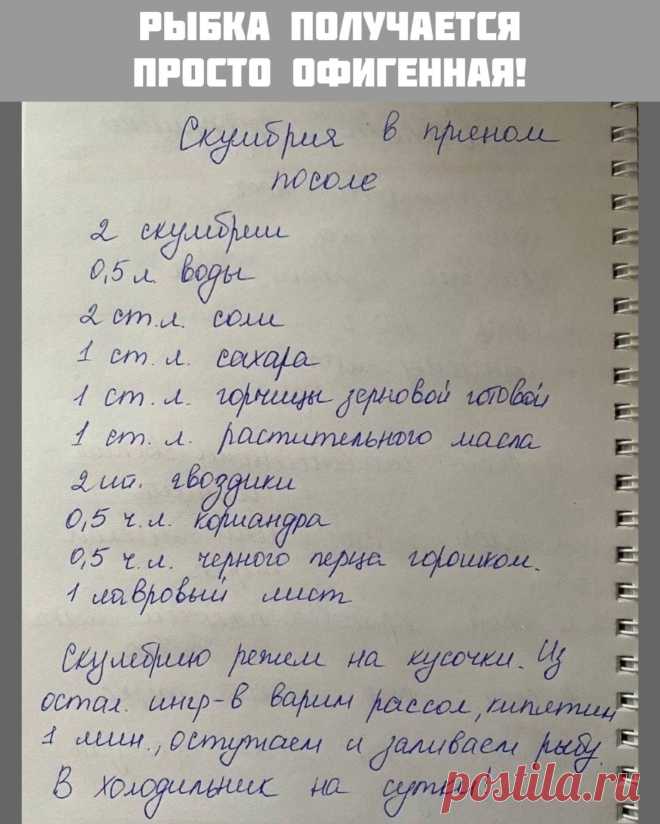 РЫБКА ПОЛУЧАЕТСЯ
ПРОСТО ОФИГЕННАЯ!
Скумбрия в пряном
посоле
2 скумбрии
0,5 л. воды
2 ст. л. соли
1 ст. л. сахара
1 ст. л. горчицы зерновой готовой
1 ст. л. растительного масла
2 шт. гвоздики
0,5 ч. л. кориандра
0,5 ч. л. черного перца горошком.
1 лавровый лист
Скумбрию режем на кусочки. Из
остал. ингр-в варим рассол, кипятим
1 мин., остужаем и заливаем рыбу.
В холодильник на сутки!
postila.ru